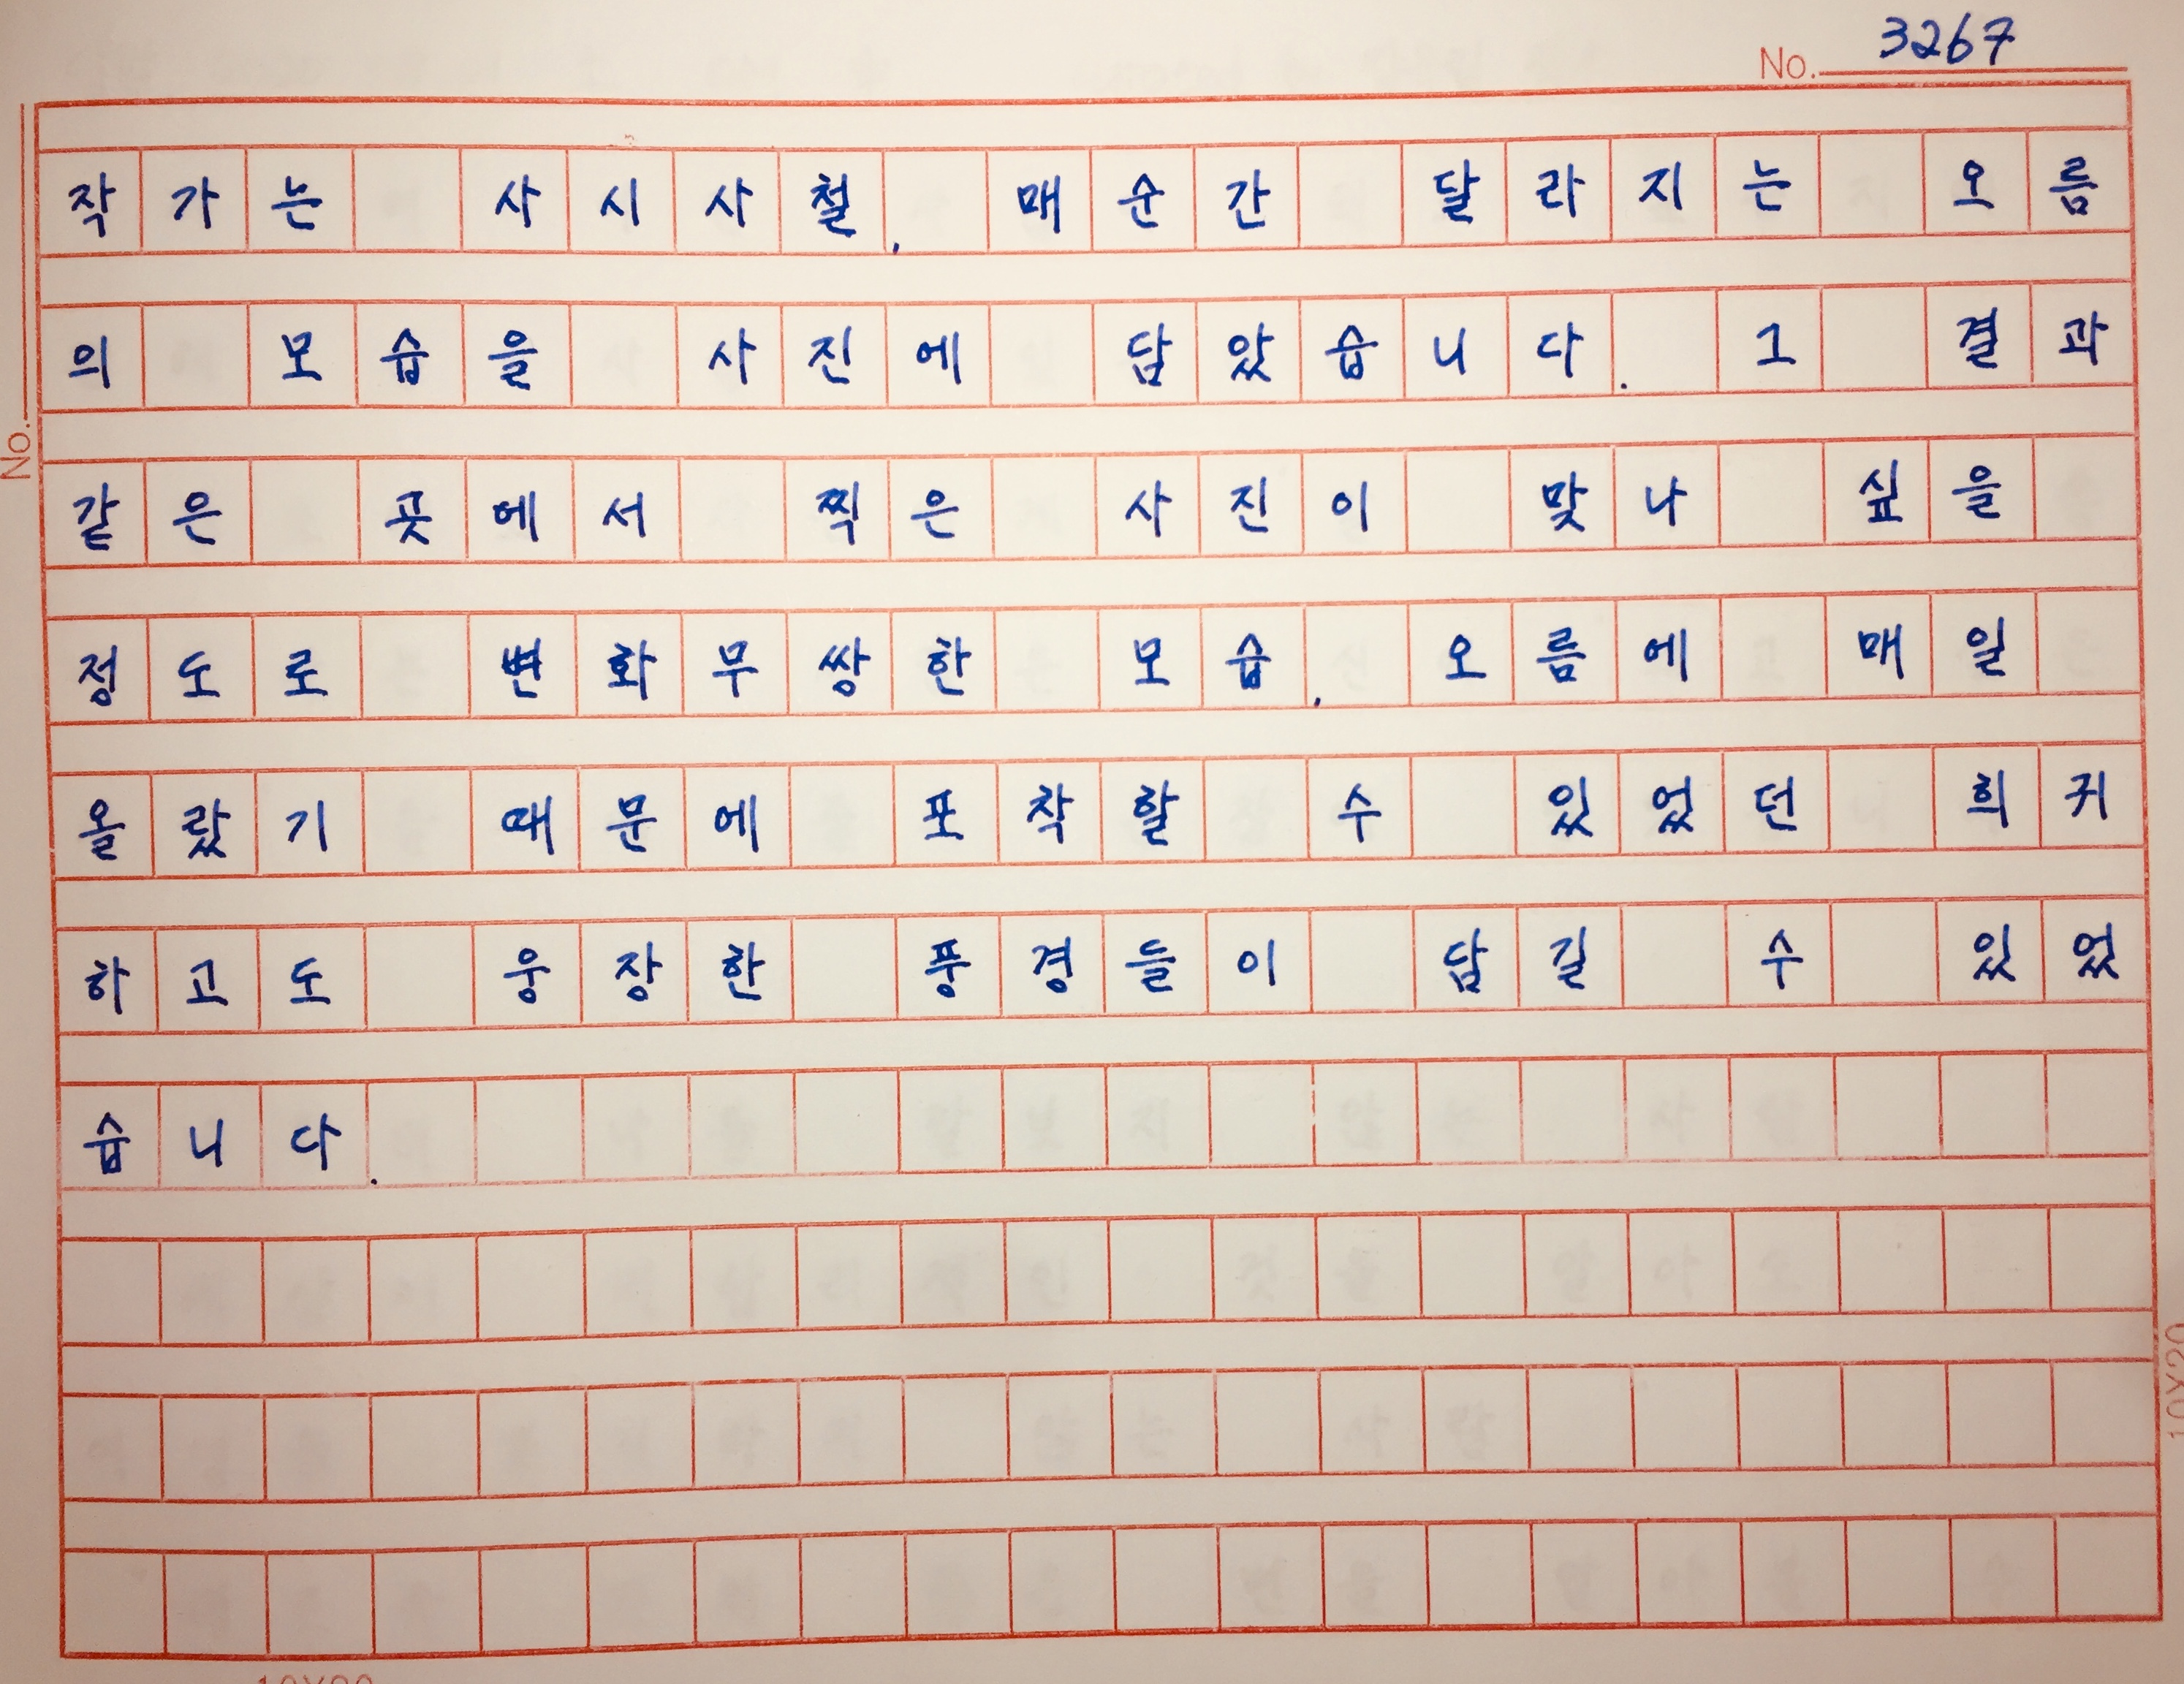 No. 3267
작가는 사시사철, 매순간 달라지는 오름
의 모습을 사진에 담았습니다. 그 결과
같은 곳에서 찍은 사진이 맞나 싶을
정도로 변화무쌍한 모습, 오름에 매일
올랐기 때문에 포착할 수 있었던 희귀
하고도 웅장한 풍경들이 담길 수 있었
습니다.
No.
10X20
10X20